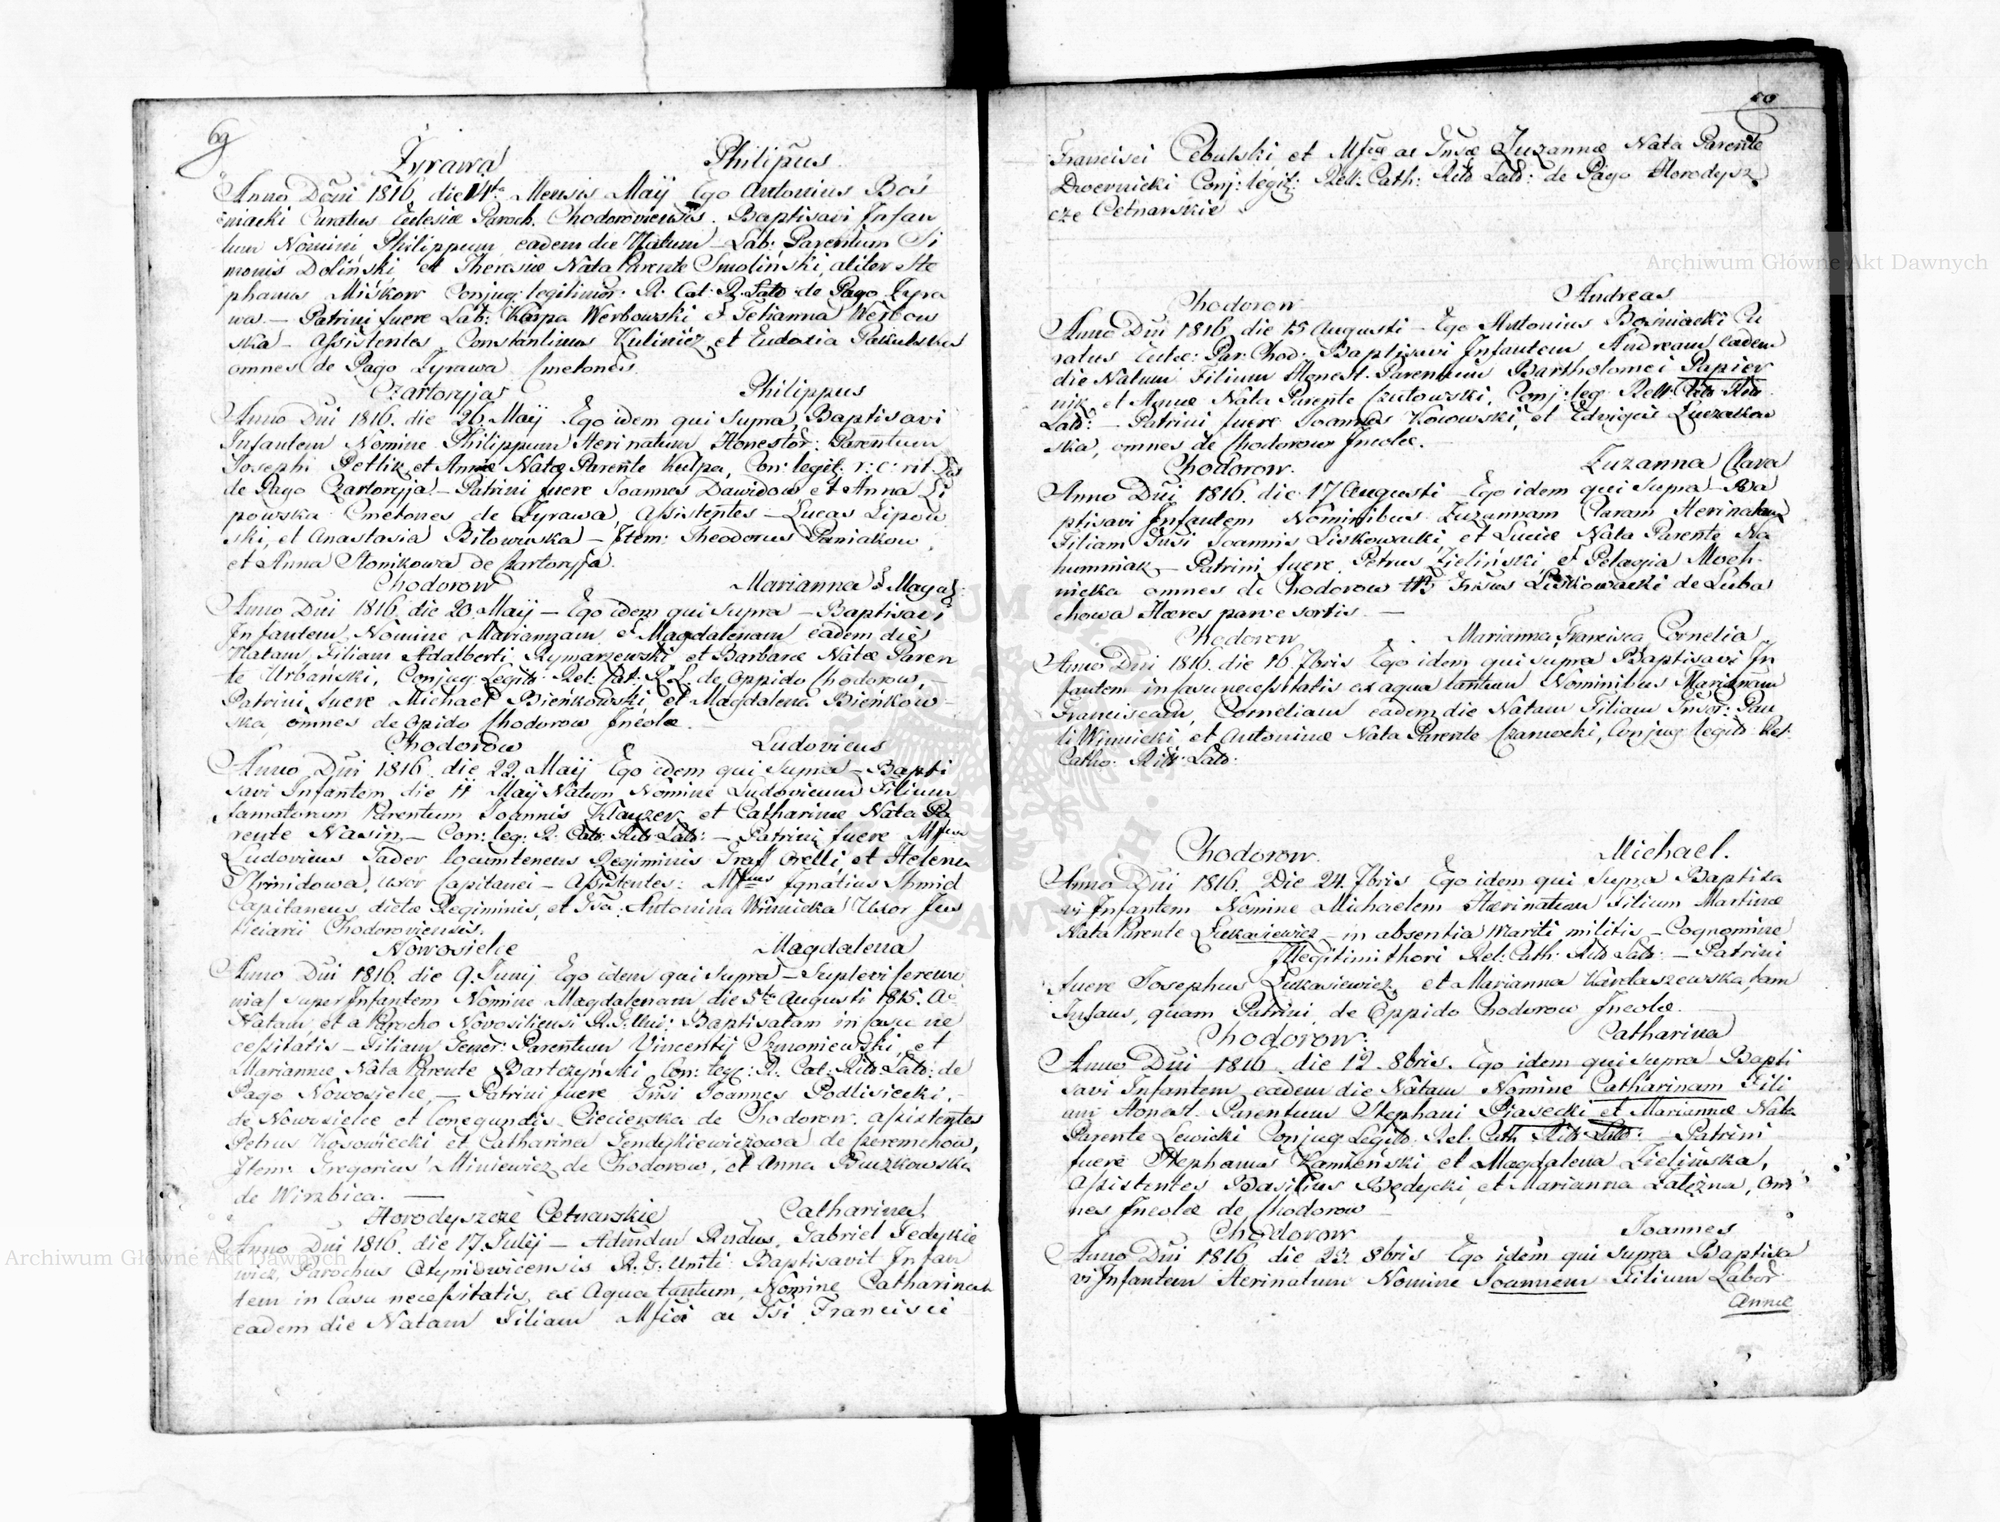 69
Żyrawa Philipus
Anno Dñi 1816 die 14ta Mensis Maij Ego Antonius Boś
niacki Curatus Eclesiæ Paroch. Chodoroviensis. Baptisavi Infan
tem Nomini Philippum eadem die Natum — Lab: Parentum Si
monis Doliński, et Theresiæ Nata Parente Smoliński, aliter Ste
phanus Miśkow Conjug: legitimor: R. Cat. R. Lat: de Pago Żyra
wa. — Patrini fuere Lab: Karpa Werbowski et Tetianna Werbow
ska — Assistentes Constantinus Kulinicz, et Eudoxia
omnes de Pago Żyrawa Cmetones.
Czartoryja Philippus
Anno Dni 1816. die 26. Maij Ego idem qui Supra, Baptisavi
Infantem Nomine Philippum Heri natum, Honestor: Parentum
Josephi Petlik, et Annæ Nata Parente Kulpa, Con: legit. r: c: rit
de Pago Czartoryja — Patrini fuere Joannes Dawidow et Anna Li
powska Cmetones de Żyrawa, Assistentes — Lucas Lipow
ski, et Anastasia Bilowuska — Item: Theodorus Paniakow,
et Anna Slomikowa de Czartoryja.
Chodorow Marianna et Magd:
Anno Dni 1816. die 20. Maij — Ego idem qui supra — Baptisavi
Infantem, Nomine Mariannam et Magdalenam eadem die
Natam, Filiam Adalberti Rymarzewski, et Barbaræ Natæ Paren
te Urbański, Conjug: Legit: Rel: Cat: R. L. de Oppido Chodorow, —
Patrini fuere Michael Bieńkowski, et Magdalena Bieńkow
ska omnes de Opido Chodorow Incolæ.
Chodorow Ludovicus
Anno Dni 1816. die 22. Maij Ego idem qui Supra — Bapti
savi Infantem, die 11 Maij Natum Nomine Ludovicum Filium
famatorum Parentum Joannis Klauzer, et Catharinæ Nata Pa
rente Nasin, — Con: leg: R. Cat: Rit: Lat: — Patrini fuere
Ludovicus Sader locumtenens Regiminis Graff Orelli, et Helena
Uxor Capitanei — Assistentes: Ignatius Shmid
Capitaneus dictæ Regiminis, et Antonina Winnicka Uxor Jus
ticiarii Chodoroviensis.
Nowosielce Magdalena
Anno Dni 1816. die 9. Junij Ego idem qui Supra — Suplevi ceremo
nias super Infantem Nomine Magdalenam die 5ta Augusti 1815. A
Natam, et a Parocho Novosiliensi R. G. Uni: Baptisatam in casu ne
cessitatis — Filiam Gener: Parentum Vincentij Szmoniewski, et
Mariannæ Nata Parente Bartczyński Con: leg: R. Cat: Rit: Lat: de
Pago Nowosielce, — Patrini fuere Joannes Podlisiecki, —
de Nowosielce et Conegundis Ciecierska de Chodorow. Assistentes
Petrus Kosowiecki et Catharina Sendykiewiczowa de
Item: Gregorius Miniewicz de Chodorow, et Anna Buczkowska
de Wirzbica. —
Horodyszcze Cetnarskie Catharina
Anno Dni 1816. die 17. Julij — Gabriel Fedykie
wicz, Parochus R. G. Uniti Baptisavit Infan
tem in Casu necessitatis, ex Aqua tantum, Nomine Catharinam
eadem die Natam Filiam ac Francisci
Francisci Cebulski et ac Zuzannæ Nata Parente
Dwernicki Conj: legit: Rell: Cath: Rit: Lat: de Pago Horodysz
cze Cetnarskie.
Chodorow Andreas
Anno Dni 1816. die 15 Augusti — Ego Antonius Bośniacki Cu
ratus Par: Chod: Baptisavi Infantem Andream eadem
die Natum Filium Honest: Parentum Bartholomei Papier
nik, et Annæ Nata Parente Szutowski, Conj: leg: Rell: Cat: Rit:
Lat: — Patrini fuere Joannes Kosowski, et Edvigis
ska, omnes de Chodorow Incolæ. —
Chodorow. Zuzanna Clara
Anno Dni 1816. die 17 Augusti — Ego idem qui supra — Ba
ptisavi Infantem Nominibus Zuzannam Claram Heri natam
Filiam Joannis Liskowacki, et Luciæ Nata Parente Na
humniak — Patrini fuere Petrus Zieliński, et Pelagia Moch
nicka omnes de Chodorow Liskowacki de Luba
chowa Hæres parvæ sortis. —
Chodorow Marianna, Francisca, Cornelia
Anno Dni 1816. die 16. 7bris Ego idem qui supra Baptisavi In
fantem in casu necessitatis ex aqua tantum Nominibus Mariannam
Franciscam, Corneliam eadem die Natam Filiam Pau
li Winnicki, et Antoninæ Nata Parente Czarnocki, Conjug: legit: Rel:
Catho: Rit: Lat:
Chodorow. Michael.
Anno Dni 1816. Die 24. 7bris Ego idem qui Supra Baptisa
vi Infantem Nomine Michaelem Heri natum Filium Martinæ
Nata Parente Łukasiewicz — in absentia Mariti militis — Cognomine
Illegitimithori Rel: Cath: Rit: Lat: — Patrini
fuere Josephus Łukasiewicz, et Marianna Kardaszewska, tam
Infans, quam Patrini, de Oppido Chodorow Incolæ.
Chodorow. Catharina
Anno Dni 1816. die 12. 8bris. Ego idem qui supra Bapti
savi Infantem, eadem die Natam Nomine Catharinam Fili
am Honest. Parentum Stephani Piasecki et Mariannæ Nata
Parente Lewicki Conjug: Legit: Rel: Cath: Rit: Lat: Patrini
fuere Stephanus Kamieński et Magdalena Zielińska,
Assistentes Basilius Bedycki, et Marianna Zalezna, Om
nes Incolæ de Chodorow —
Chodorow Joannes
Anno Dni 1816 die 23. 8bris Ego idem qui supra Baptisa
vi Infantem Heri natum Nomine Joannem Filium Labor:
Annæ
Archiwum Główne Akt Dawnych
Archiwum Główne Akt Dawnych